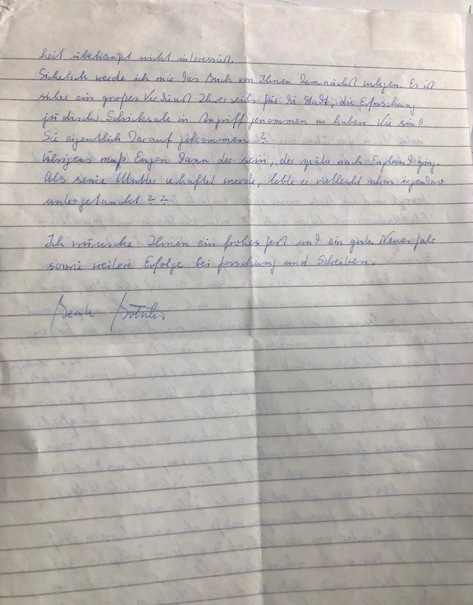 heit überhaupt nicht interessiert.
Sicherlich werde ich mir das Buch von Ihnen demnächst zulegen. Es ist
sicher ein großes Verdienst Ihrerseits für die Stadt, die Erforschung
jüdische Schicksale in Angriff genommen zu haben. Wie sind
Sie eigentlich darauf gekommen?
Übrigens muß Eugen dann der sein, der später nach England ging.
Als seine Mutter verhaftet wurde, lebte er vielleicht schon irgendwo
untergetaucht??
Ich wünsche Ihnen ein frohes Fest und ein gutes Neues Jahr
sowie weitere Erfolge bei Forschung und Schreiben.